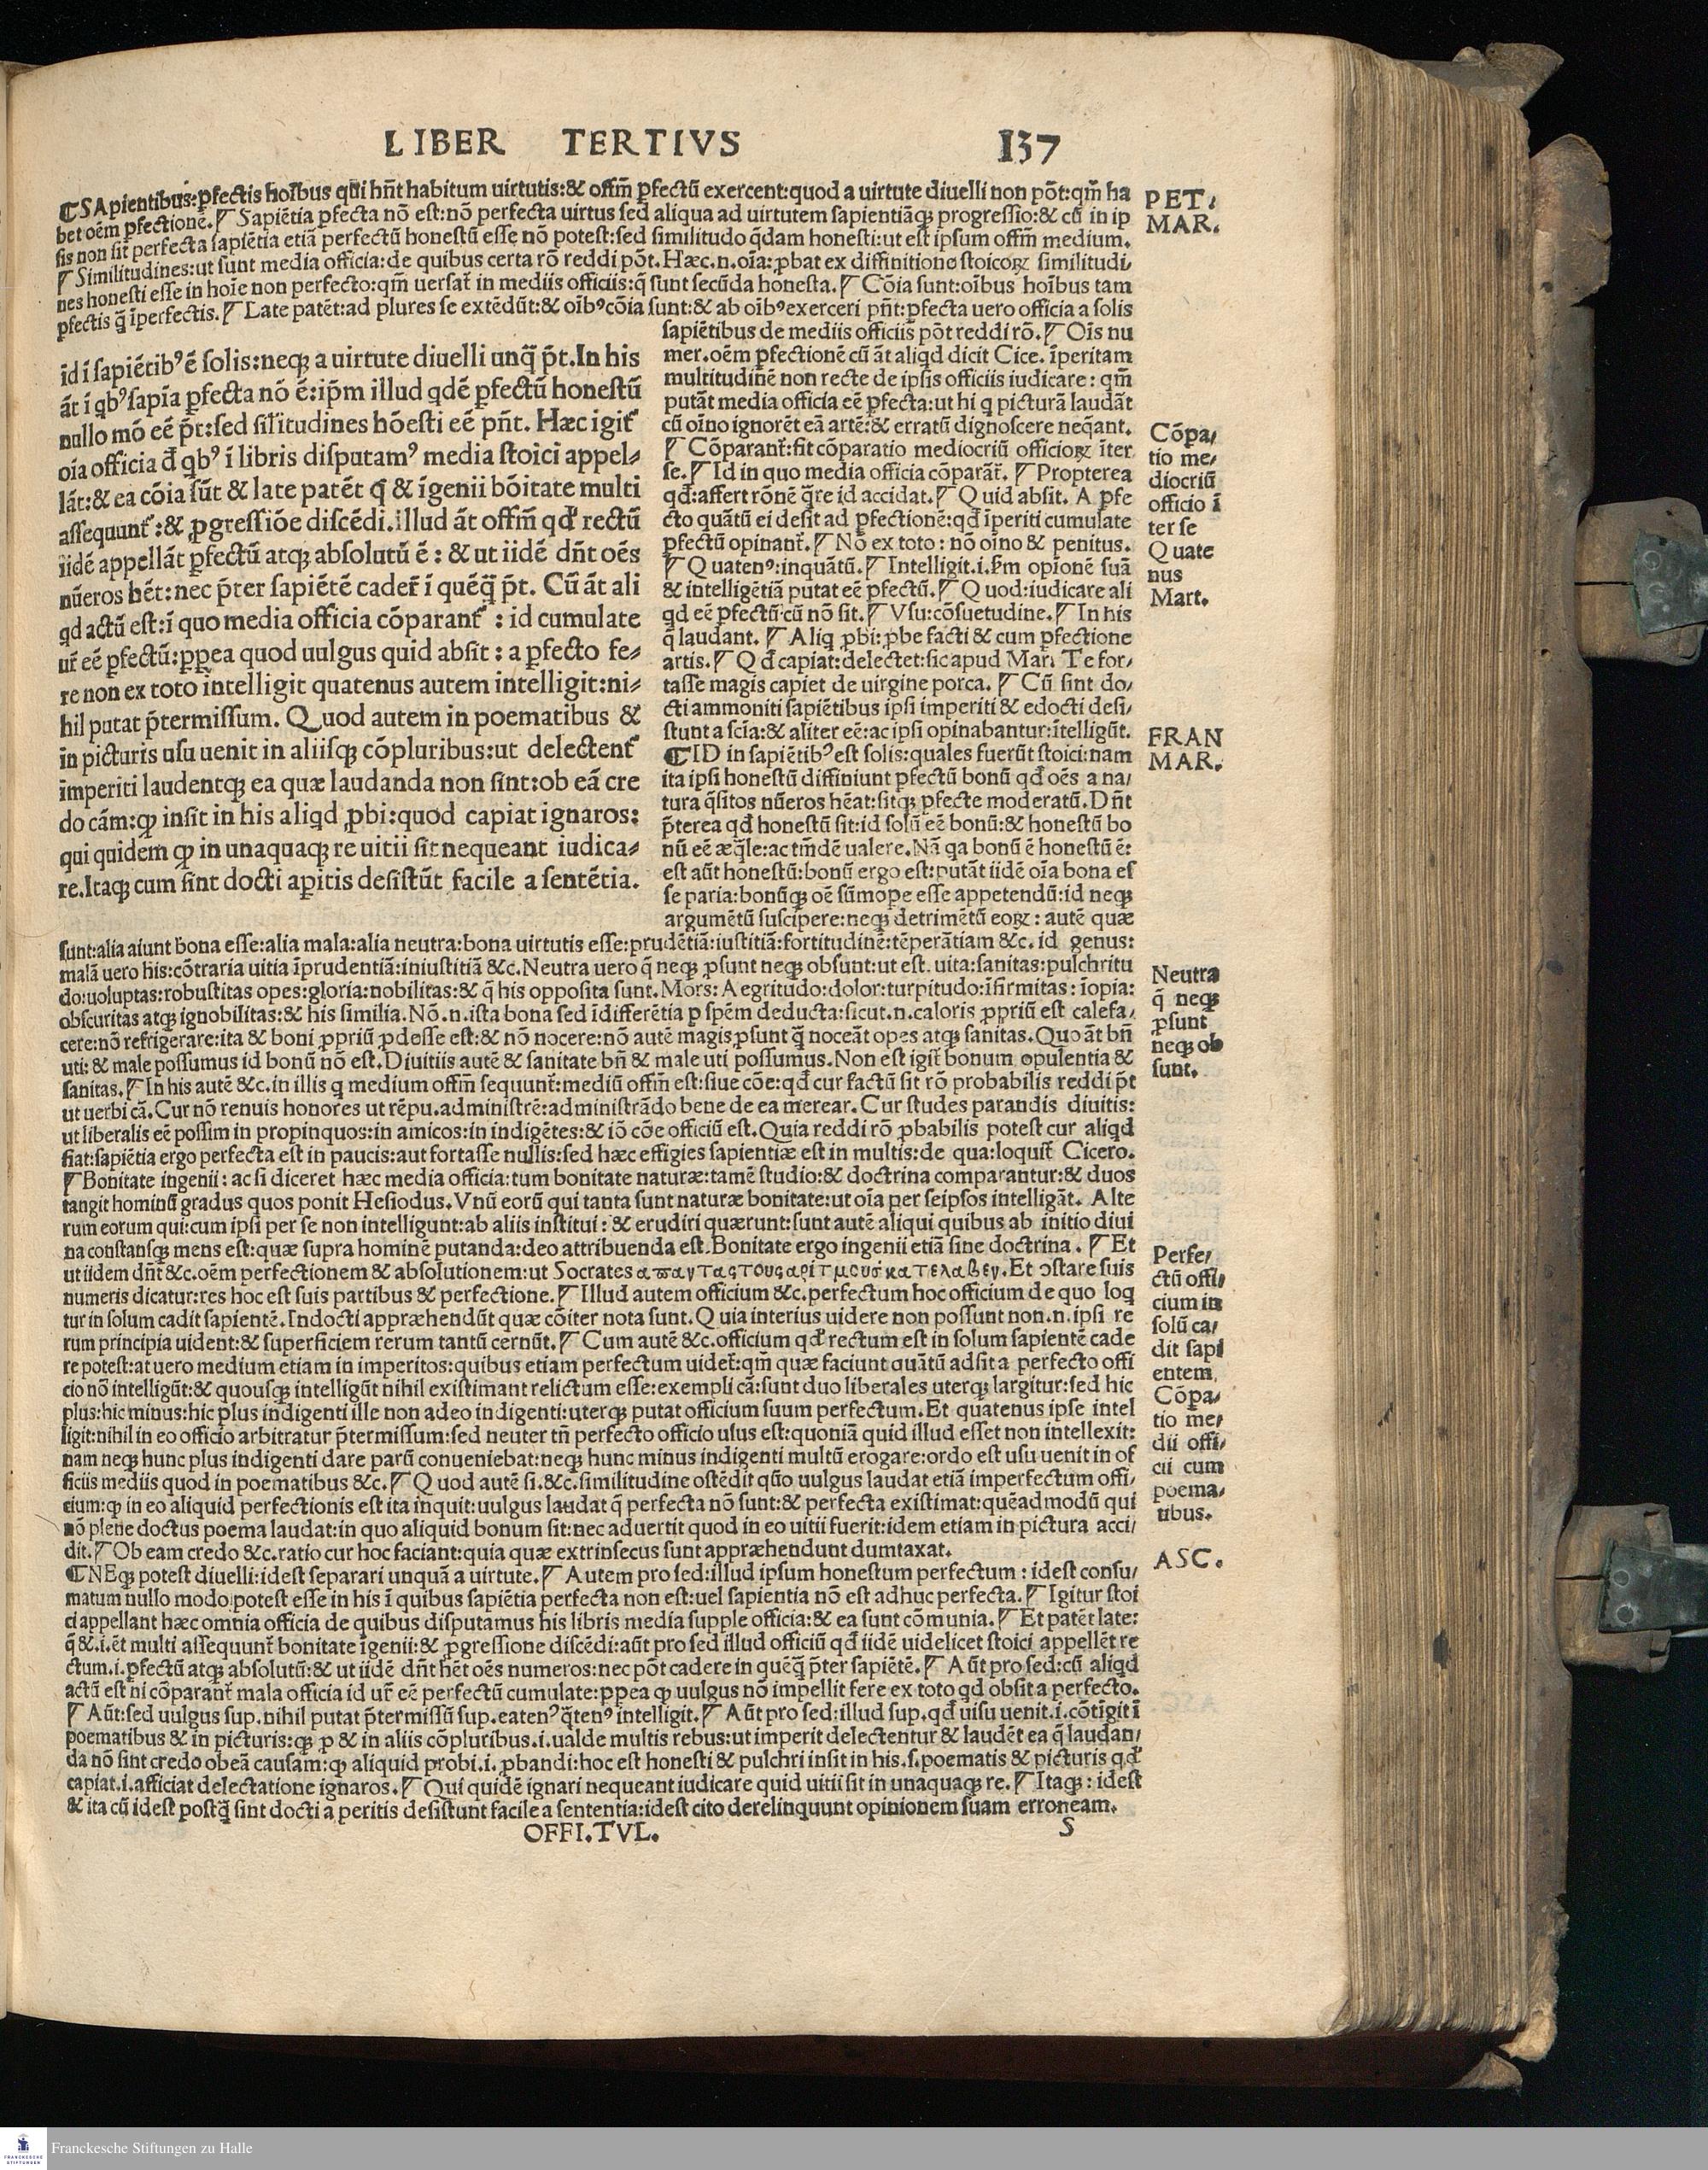 LIBER TERTIVS 137
⸿SApientibus:ꝑfectis hoībus qui hn̄t habitum uirtutis:& offm̄ ꝑfectū exercent:quod a uirtute diuelli non pōt:qm̄ ha
bet oēm ꝑfectionē.¶Sapiētia ꝑfecta nō est:nō perfecta uirtus sed aliqua ad uirtutem sapientiāqꝫ progressio:& cū in ip
sis non sit perfecta sapiētia etiā perfectū honestū esse nō potest:sed similitudo q̄dam honesti:ut est ipsum offm̄ medium.
¶Similitudines:ut sunt media officia:de quibus certa rō reddi pōt.Hæc.n.oīa:ꝓbat ex diffinitione stoicoꝝ similitudi/
nes honesti esse in hoīe non perfecto:qm̄ uersat̄ in mediis officiis:q̄ sunt secūda honesta.¶Cōia sunt:oībus hoībus tam
ꝑfectis q̄ īperfectis.¶Late patēt:ad plures se extēdūt:& oībꝰcōia sunt:& ab oībꝰexerceri pn̄t:ꝑfecta uero officia a solis
PET.
MAR.
īd ī sapiētibꝰē solis:neqꝫ a uirtute diuelli unq̄ p̄t.In his
āt ī qbꝰsapīa ꝑfecta nō ē:ip̄m illud qdē ꝑfectū honestū
nullo mō eē p̄t:sed sil̄itudines hōesti eē pn̄t. Hæc igit̄
oīa officia đ qbꝰ ī libris disputamꝰ media stoici appel/
lāt:& ea cōia sūt & late patēt q̄ & īgenii bōitate multi
assequunt̄:& ꝓgressiōe discēdi.illud āt offm̄ qđ rectū
iidē appellāt ꝑfectū atqꝫ absolutū ē: & ut iidē dn̄t oēs
nūeros hēt:nec p̄ter sapiētē cadet̄ ī quēq̄ p̄t. Cū āt ali
qd actū est:ī quo media officia cōparant̄ : id cumulate
ur̄ eē ꝑfectū:ꝓꝑea quod uulgus quid absit : a ꝑfecto fe/
re non ex toto intelligit quatenus autem intelligit:ni/
hil putat p̄termissum. Quod autem in poematibus &
in picturis usu uenit in aliisqꝫ cōpluribus:ut delectent̄
imperiti laudentqꝫ ea quæ laudanda non sint:ob eā cre
do cām:ꝙ insit in his aliqd ꝓbi:quod capiat ignaros:
qui quidem ꝙ in unaquaqꝫ re uitii sit nequeant iudica/
re.Itaqꝫ cum sint docti a ꝑitis desistūt facile a sentētia.
sapiētibus de mediis officiis pōt reddi rō.¶Oīs nu
mer.oēm ꝑfectionē cū āt aliqd dicit Cice. īperitam
multitudinē non recte de ipsis officiis iudicare: qm̄
putāt media officia eē ꝑfecta:ut hi q picturā laudāt
cū oīno ignorēt eā artē:& erratū dignoscere neqāt.
¶Cōparant̄:fit cōparatio mediocriū officioꝝ īter
se.¶Id in quo media officia cōparāt̄. ¶Propterea
qđ:affert rōnē q̄re id accidat.¶Quid absit. A ꝑfe
cto quātū ei desit ad ꝑfectionē:qđ īperiti cumulate
ꝑfectū opinant̄.¶Nō ex toto: nō oīno & penitus.
¶Quatenꝰ:inquātū.¶Intelligit.i.ẜm opionē suā
& intelligētiā putat eē ꝑfectū.¶Quod:iudicare ali
qd eē ꝑfectū:cū nō sit.¶Vsu:cōsuetudine.¶In his
q̄ laudant. ¶Aliq ꝓbi:ꝓbe facti & cum ꝑfectione
artis.¶Qđ capiat:delectet:sic apud Mar. Te for/
tasse magis capiet de uirgine porca. ¶Cū sint do/
cti ammoniti sapiētibus ipsi imperiti & edocti desi/
stunt a scīa:& aliter eē:ac ipsi opinabantur:ītelligūt.
⸿ID in sapiētibꝰest solis:quales fuerūt stoici:nam
ita ipsi honestū diffiniunt ꝑfectū bonū qđ oēs a na/
tura q̄sitos nūeros hēat:sitqꝫ ꝑfecte moderatū.Dn̄t
p̄terea qđ honestū sit:id solū eē bonū:& honestū bo
nū eē æq̄le:ac tm̄dē ualere.Nā qa bonū ē honestū ē:
est aūt honestū:bonū ergo est:putāt iidē oīa bona es
se paria:bonūqꝫ oē sūmope esse appetendū:id neqꝫ
argumētū suscipere:neqꝫ detrimētū eoꝝ: autē quæ
Cōpa/
tio me/
diocriū
officio ī
ter se
Quate
nus
Mart.
FRAN
MAR.
sunt:alia aiunt bona esse:alia mala:alia neutra:bona uirtutis esse:prudētiā:iustitiā:fortitudinē:tēperātiam &c. id genus:
malā uero his:cōtraria uitia īprudentiā:iniustitiā &c.Neutra uero q̄ neqꝫ ꝓsunt neqꝫ obsunt:ut est. uita:sanitas:pulchritu
do:uoluptas:robustitas opes:gloria:nobilitas:& q̄ his opposita sunt.Mors:Aegritudo:dolor:turpitudo:īfirmitas: īopia:
obscuritas atqꝫ ignobilitas:& his similia.Nō.n.ista bona sed īdifferētia ꝑ spēm deducta:sicut.n.caloris ꝓpriū est calefa/
cere:nō refrigerare:ita & boni ꝓpriū ꝓdesse est:& nō nocere:nō autē magis ꝓsunt q̄ noceāt opes atqꝫ sanitas.Quo āt bn̄
uti: & male possumus id bonū nō est.Diuitiis autē & sanitate bn̄ & male uti possumus.Non est igit̄ bonum opulentia &
sanitas.¶In his autē &c.in illis q medium offm̄ sequunt̄:mediū offm̄ est:siue cōe:qđ cur factū sit rō probabilis reddi p̄t
ut uerbi cā.Cur nō renuis honores ut rēpu.administrē:administrādo bene de ea merear.Cur studes parandis diuitis:
ut liberalis eē possim in propinquos:in amicos:in indigētes:& iō cōe officiū est.Quia reddi rō ꝓbabilis potest cur aliqd
fiat:sapiētia ergo perfecta est in paucis:aut fortasse nullis:sed hæc effigies sapientiæ est in multis:de qua:loquit̄ Cicero.
¶Bonitate ingenii: ac si diceret hæc media officia:tum bonitate naturæ:tamē studio:& doctrina comparantur:& duos
tangit hominū gradus quos ponit Hesiodus.Vnū eorū qui tanta sunt naturæ bonitate:ut oīa per seipsos intelligāt. Alte
rum eorum qui:cum ipsi per se non intelligunt:ab aliis institui:& erudiri quærunt:sunt autē aliqui quibus ab initio diui
na constansqꝫ mens est:quæ supra hominē putanda:deo attribuenda est.Bonitate ergo ingenii etiā sine doctrina.¶Et
ut iidem dn̄t &c.oēm perfectionem & absolutionem:ut Socrates .Et ↄstare suis
numeris dicatur:res hoc est suis partibus & perfectione.¶Illud autem officium &c.perfectum hoc officium de quo loq
tur in solum cadit sapientē.Indocti appræhendūt quæ cōiter nota sunt.Quia interius uidere non possunt non.n.ipsi re
rum principia uident:& superficiem rerum tantū cernūt.¶Cum autē &c.officium qđ rectum est in solum sapientē cade
re potest:at uero medium etiam in imperitos:quibus etiam perfectum uidet̄:qm̄ quæ faciunt quātū adsit a perfecto offi
cio nō intelligūt:& quousqꝫ intelligūt nihil existimant relictum esse:exempli cā:sunt duo liberales uterqꝫ largitur:sed hic
plus:hic minus:hic plus indigenti ille non adeo indigenti:uterqꝫ putat officium suum perfectum.Et quatenus ipse intel
ligit:nihil in eo officio arbitratur p̄termissum:sed neuter tn̄ perfecto officio usus est:quoniā quid illud esset non intellexit:
nam neqꝫ hunc plus indigenti dare parū conueniebat:neqꝫ hunc minus indigenti multū erogare:ordo est usu uenit in of
ficiis mediis quod in poematibus &c.¶Quod autē si.&c.similitudine ostēdit quō uulgus laudat etiā imperfectum offi/
cium:ꝙ in eo aliquid perfectionis est ita inquit:uulgus laudat q̄ perfecta nō sunt:& perfecta existimat:quēadmodū qui
nō plene doctus poema laudat:in quo aliquid bonum sit:nec aduertit quod in eo uitii fuerit:idem etiam in pictura acci/
dit.¶Ob eam credo &c.ratio cur hoc faciant:quia quæ extrinsecus sunt appræhendunt dumtaxat.
⸿NEqꝫ potest diuelli:idest separari unquā a uirtute.¶Autem pro sed:illud ipsum honestum perfectum: idest consu/
matum nullo modo potest esse in his ī quibus sapiētia perfecta non est:uel sapientia nō est adhuc perfecta.¶Igitur stoi
ci appellant hæc omnia officia de quibus disputamus his libris media supple officia:& ea sunt cōmunia.¶Et patēt late:
q̄ &.i.ēt multi assequunt̄ bonitate īgenii:& ꝓgressione discēdi:aūt pro sed illud officiū qđ iidē uidelicet stoici appellēt re
ctum.i.ꝑfectū atqꝫ absolutū:& ut iidē dn̄t hēt oēs numeros:nec pōt cadere in quēq̄ p̄ter sapiētē.¶Aūt pro sed:cū aliqd
actū est ni cōparant̄ mala officia id ur̄ eē perfectū cumulate:ꝓꝑea ꝙ uulgus nō impellit fere ex toto qd obsit a perfecto.
¶Aūt:sed uulgus sup.nihil putat p̄termissū sup.eatenꝰ q̄tenꝰ intelligit.¶Aūt pro sed:illud sup.qđ uisu uenit.i.cōtīgit ī
poematibus & in picturis:qꝫ ꝑ & in aliis cōpluribus.i.ualde multis rebus:ut imperit delectentur & laudēt ea q̄ laudan/
da nō sint credo obeā causam:ꝙ aliquid probi.i.ꝓbandi:hoc est honesti & pulchri insit in his.s.poematis & picturis qđ
capiat.i.afficiat delectatione ignaros.¶Qui quidē ignari nequeant iudicare quid uitii sit in unaquaqꝫ re.¶Itaqꝫ: idest
& ita cū idest postq̄ sint docti a peritis desistunt facile a sententia:idest cito derelinquunt opinionem suam erroneam.
Neutra
q̄ neqꝫ
ꝓsunt
neqꝫ ob
sunt.
Perfe/
ctū offi/
cium in
solū ca/
dit sapi
entem.
Cōpa/
tio me/
dii offi/
cii cum
poema/
tibus.
ASC.
OFFI.TVL. S
Franckesche Stiftungen zu Halle